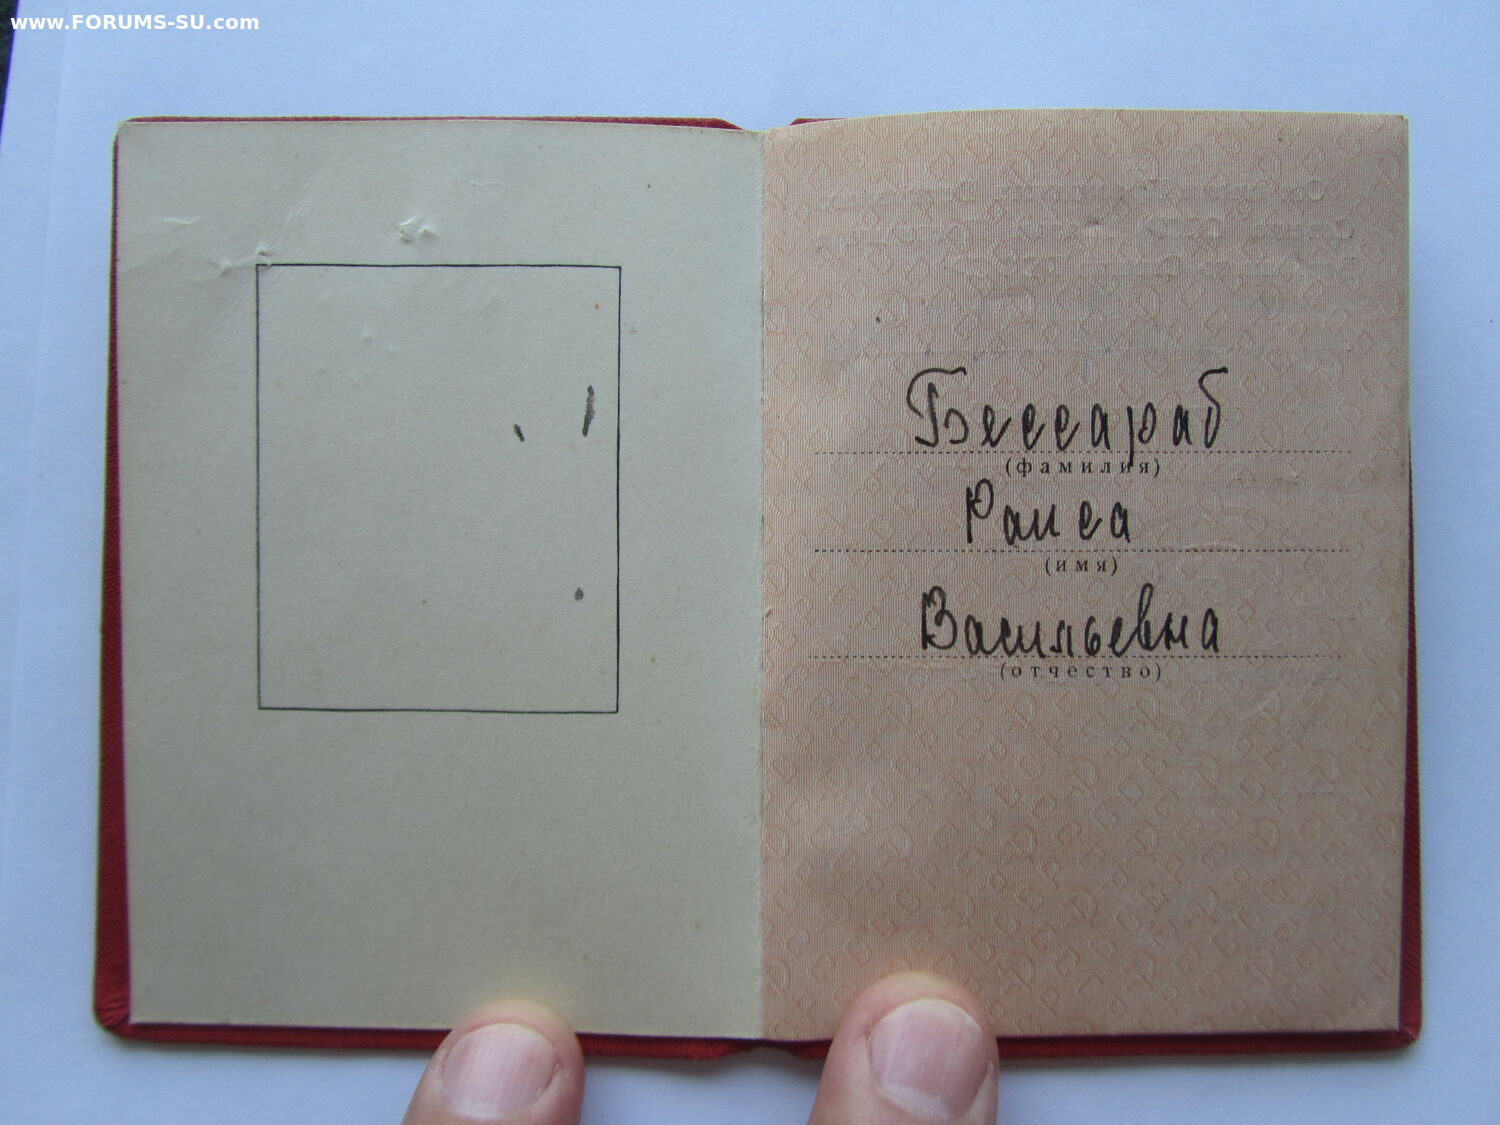 www.FORUMS-SU.com
Бессараб
(фамилия)
Раиса
(имя)
Васильевна
(отчество)